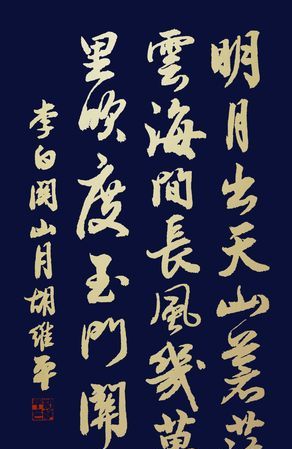 明月出天山蒼茫
雲海間長風幾萬
里吹度玉門關
李白関山月胡維平